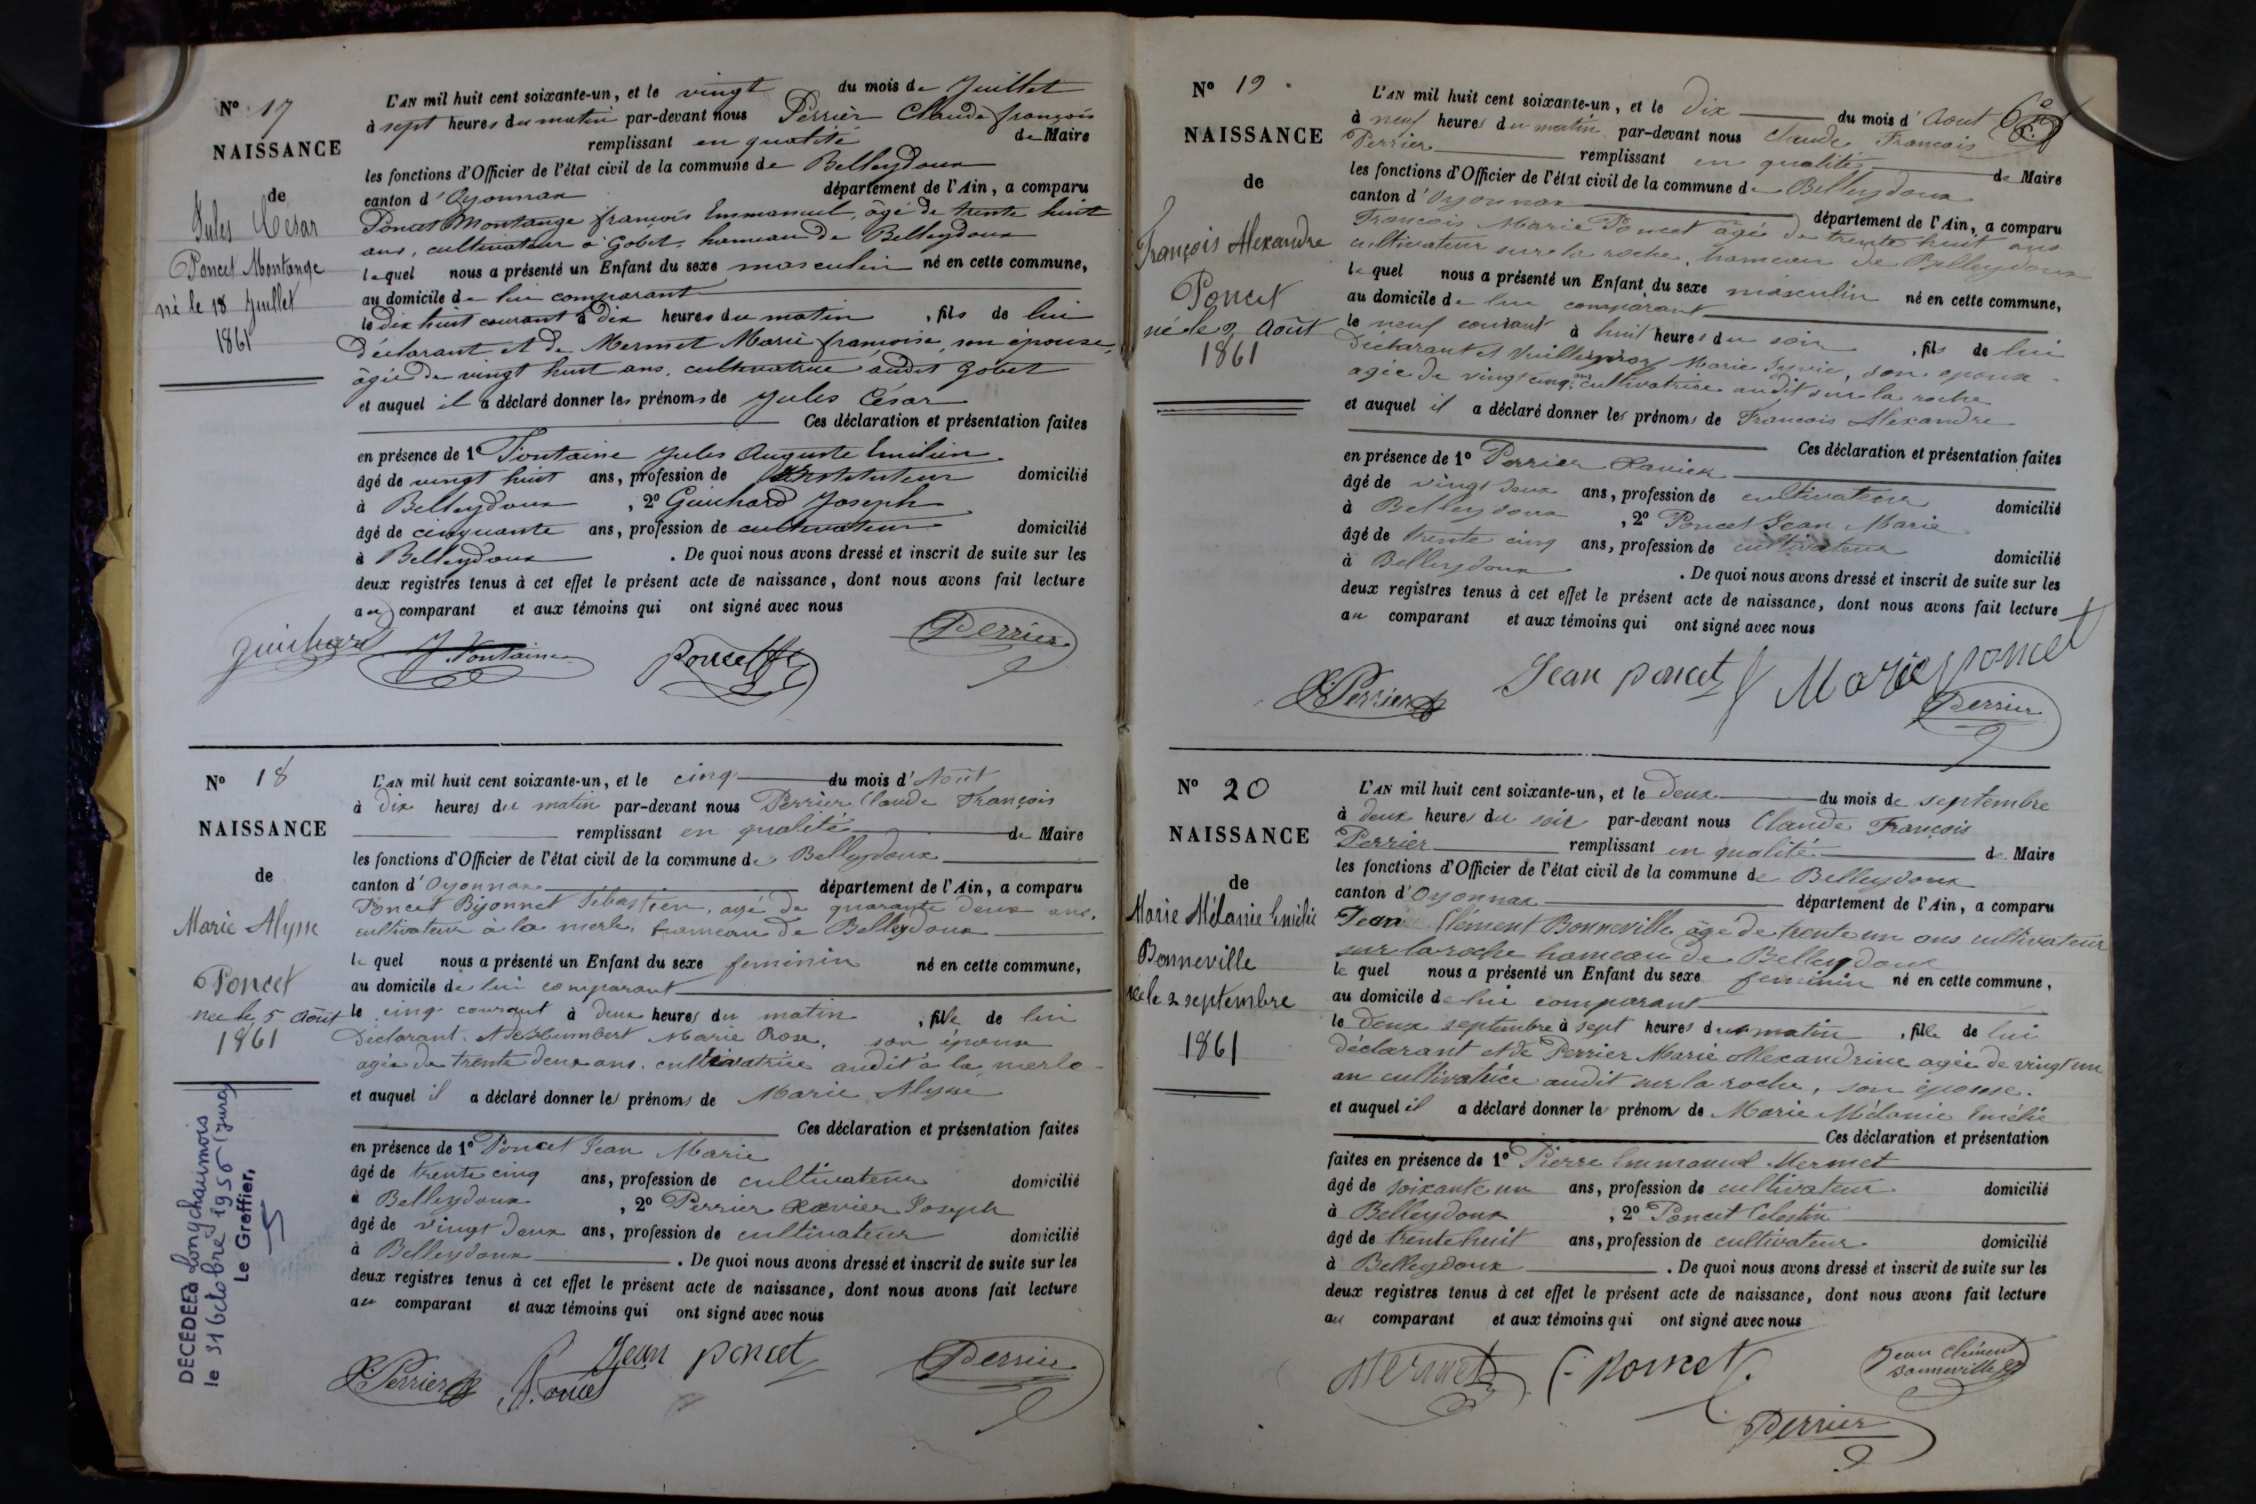 N° 17
NAISSANCE
de
Jules César
Poncet Montange
né le 18 Juillet
1861
L'AN mil huit cent soixante-un, et le vingt du mois de Juillet
à sept heures du matin par-devant nous Perrier Claude françois
remplissant en qualité de Maire
les fonctions d'Officier de l'état civil de la commune de Belleydoux
canton d'Oyonnax département de l'Ain, a comparu
Poncet Montange françois Emmanuel, âgé de trente huit
ans, cultivateur à Gobet, hameau de Belleydoux
lequel nous a présenté un Enfant du sexe masculin né en cette commune,
au domicile de lui comparant
le dix huit courant à dix heures du matin, fils de lui
déclarant et de Mermet Marie françoise, son épouse,
âgée de vingt huit ans, cultivatrice audit Gobet
et auquel il a déclaré donner les prénoms de Jules César
Ces déclaration et présentation faites
en présence de 1° Fontaine Jules Auguste Emilien
âgé de vingt huit ans, profession de Instituteur domicilié
à Belleydoux, 2° Guichard Joseph
âgé de cinquante ans, profession de cultivateur domicilié
à Belleydoux. De quoi nous avons dressé et inscrit de suite sur les
deux registres tenus à cet effet le présent acte de naissance, dont nous avons fait lecture
au comparant et aux témoins qui ont signé avec nous
guichard J. Fontaine Poncet Perrier
N° 18
NAISSANCE
de
Marie Alysse
Poncet
née le 5 Août
1861
DÉCÉDÉE à Longchaumois
le 31 octobre 1956 (Jura)
Le Greffier,
L'AN mil huit cent soixante-un, et le cinq du mois d'Août
à dix heures du matin par-devant nous Perrier Claude François
remplissant en qualité de Maire
les fonctions d'Officier de l'état civil de la commune de Belleydoux
canton d'Oyonnax département de l'Ain, a comparu
Poncet Bijonnet Sébastien, agé de quarante deux ans,
cultivateur à la merle, hameau de Belleydoux
le quel nous a présenté un Enfant du sexe feminin né en cette commune,
au domicile de lui comparant
le cinq courant à deux heures du matin, fille de lui
Déclarant et de Humbert Marie Rose, son épouse
agée de trente deux ans, cultivatrice audit à la merle
et auquel il a déclaré donner les prénoms de Marie Alysse
Ces déclaration et présentation faites
en présence de 1° Poncet Jean Marie
âgé de trente cinq ans, profession de cultivateur domicilié
à Belleydoux, 2° Perrier Xavier Joseph
âgé de vingt deux ans, profession de cultivateur domicilié
à Belleydoux. De quoi nous avons dressé et inscrit de suite sur les
deux registres tenus à cet effet le présent acte de naissance, dont nous avons fait lecture
au comparant et aux témoins qui ont signé avec nous
X Perrier Poncet Jean poncet Perrier
N° 19
NAISSANCE
de
François Alexandre
Poncet
né le 9 Août
1861
L'AN mil huit cent soixante-un, et le Dix du mois d'Aout 6e
à neuf heures du matin par-devant nous Claude François
Perrier remplissant en qualité de Maire
les fonctions d'Officier de l'état civil de la commune de Belleydoux
canton d'Oyonnax département de l'Ain, a comparu
François Marie Poncet âgé de trente huit ans
cultivateur sur la roche, hameau de Belleydoux
le quel nous a présenté un Enfant du sexe masculin né en cette commune,
au domicile de lui comparant
le neuf courant à huit heures du soir, fils de lui
Déclarant et Vuillermoz Marie Sylvie, son epouse
agée de vingt cinq ans cultivatrice audit sur la roche
et auquel il a déclaré donner les prénoms de François Alexandre
Ces déclaration et présentation faites
en présence de 1° Perrier Xavier
âgé de vingt deux ans, profession de cultivateur domicilié
à Belleydoux, 2° Poncet Jean Marie
âgé de trente cinq ans, profession de cultivateur domicilié
à Belleydoux. De quoi nous avons dressé et inscrit de suite sur les
deux registres tenus à cet effet le présent acte de naissance, dont nous avons fait lecture
au comparant et aux témoins qui ont signé avec nous
X Perrier Jean poncet f Marie poncet
Perrier
N° 20
NAISSANCE
de
Marie Mélanie Emélie
Bonneville
née le 2 septembre
1861
L'AN mil huit cent soixante-un, et le Deux du mois de septembre
à deux heures du soir par-devant nous Claude François
Perrier remplissant en qualité de Maire
les fonctions d'Officier de l'état civil de la commune de Belleydoux
canton d'Oyonnax département de l'Ain, a comparu
Jean Clément Bonneville âgé de trente un ans cultivateur
sur la roche hameau de Belleydoux
le quel nous a présenté un Enfant du sexe feminin né en cette commune,
au domicile de lui comparant
le Deux septembre à sept heures du matin, fille de lui
déclarant et de Perrier Marie Alexandrine agée de vingt un
an cultivatrice audit sur la roche, son épouse.
et auquel il a déclaré donner le prénom de Marie Mélanie Emélie
Ces déclaration et présentation
faites en présence de 1° Pierre Emmanuel Mermet
âgé de soixante un ans, profession de cultivateur domicilié
à Belleydoux, 2° Poncet Celestin
âgé de trente huit ans, profession de cultivateur domicilié
à Belleydoux. De quoi nous avons dressé et inscrit de suite sur les
deux registres tenus à cet effet le présent acte de naissance, dont nous avons fait lecture
au comparant et aux témoins qui ont signé avec nous
Mermet C. poncet Jean Clément
Bonneville
Perrier